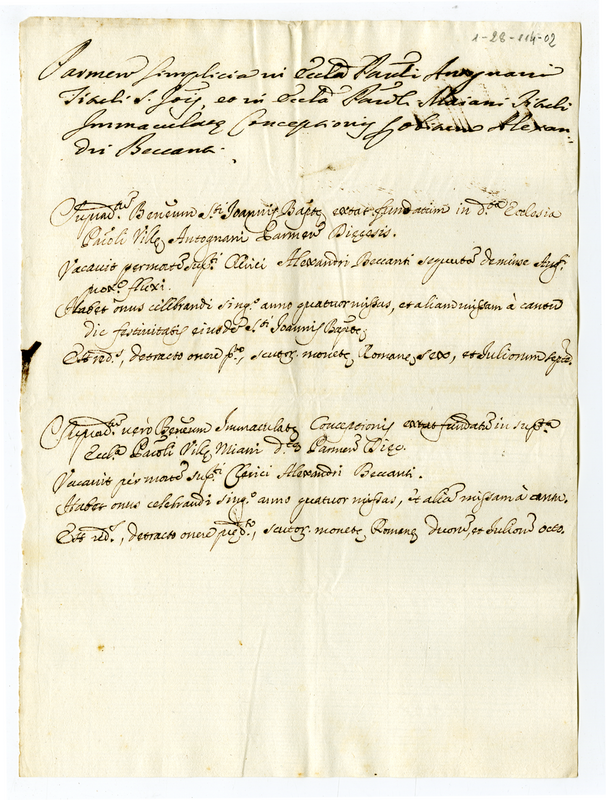 1-28-114-02
Parmen Simplicia in Eccla Paroli Antognani
Tituli S. Jois, et in Eccla Paroli Maiani Tituli
Immaculatę Conceptionis Alexan=
dri Beccanti.
Beneum Sti Joannis Bapte extat fundatum in da Ecclesia
Paroli Villę Antognani Parmen Dięcesis.
Vacavit per morte supti Clerici Alexandri Beccanti sequuta de mense Augti
proxe fluxi.
Habet onus celebrandi singo anno quatuor missas, et aliam missam à cantu
die festivitatis eiusde Sti Joannis Bapte
Est reds, detracto onere po, scutor. monetę Romanę sex, et Juliorum septe.
vero Beneum Immaculatę Conceptionis extat fundatu in supta
Eccla Paroli Villę Miani da Parmen Diec.
Vacavit per morte supti Clerici Alexandri Beccanti.
Habet onus celebrandi singo anno quatuor missas, et alia missam à cantu.
Est reds, detracto onere predto, scutor. monetę Romanę duoru, et Julioru octo.